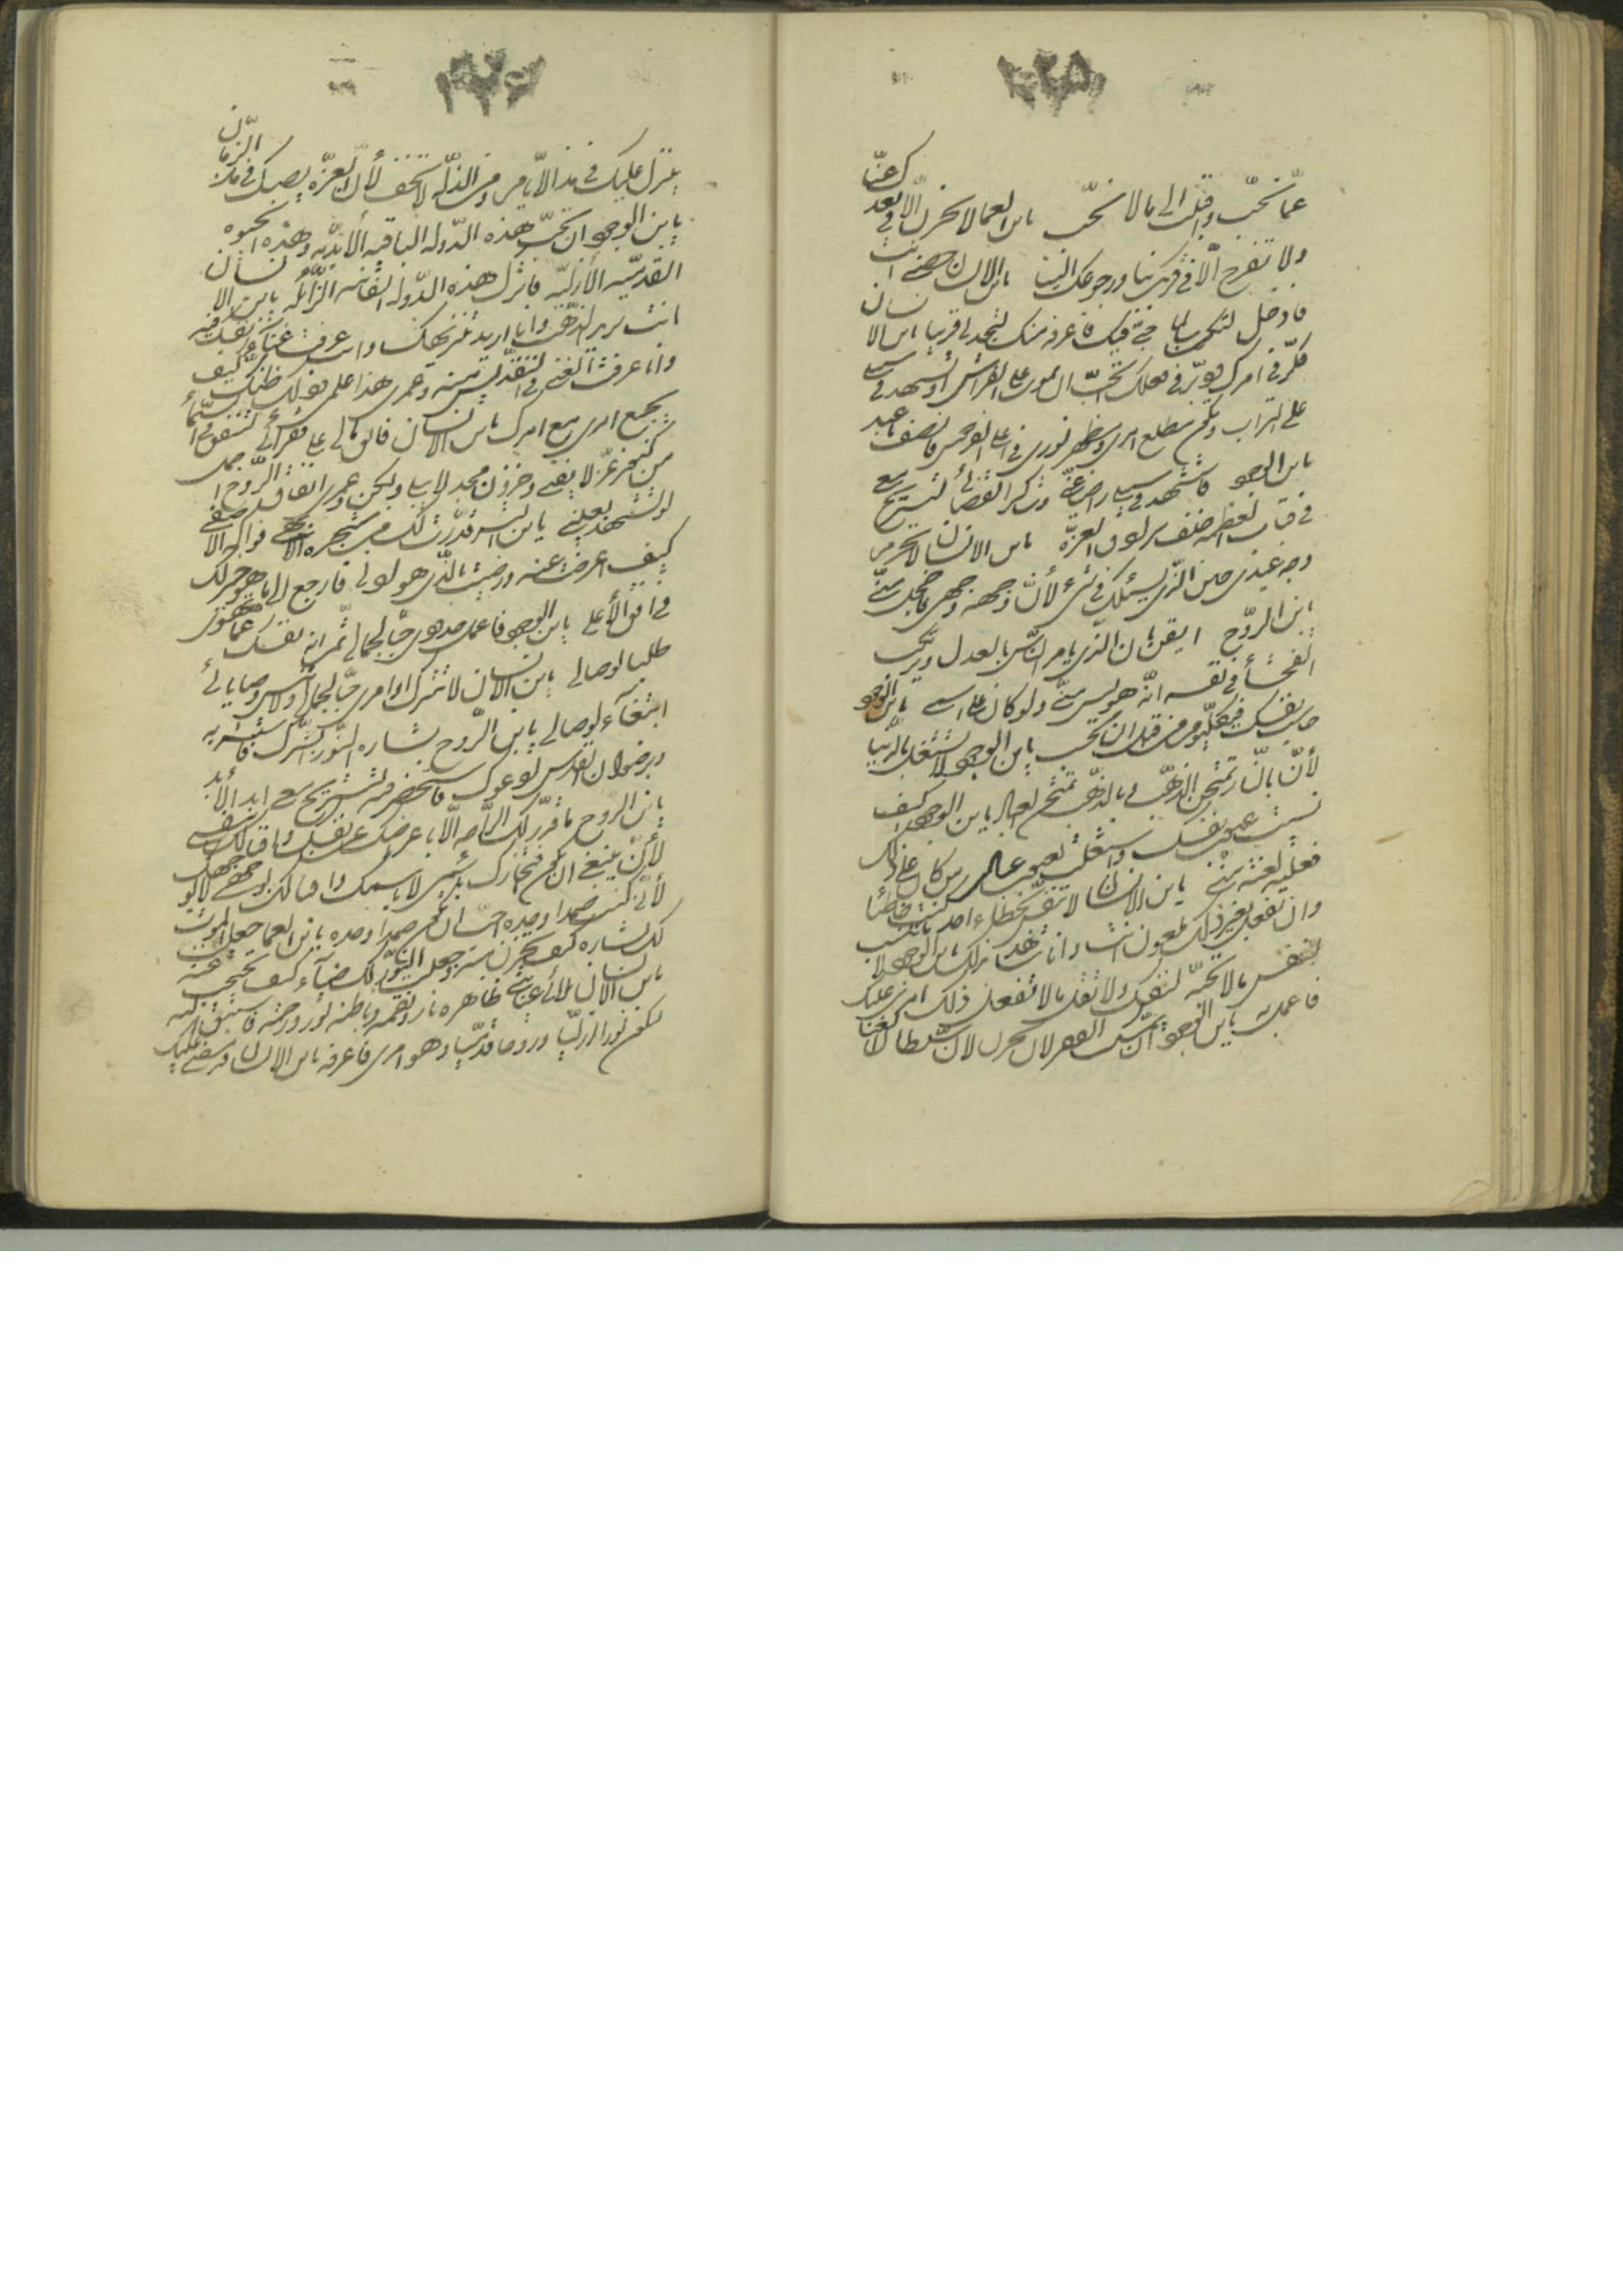 ٢٢٥
عمّا تحبّ و اقبلت الى ما لا تحبّ يابن العما لا تحزن الّا في بعدك عنّا
ولا تفرح الّا في قربك بنا ورجوعك الينا يابن الانسان حصني انت
فادخل لتكون سالما حبّي فيك فاعرفه منك لتجدني قريبا يابن الانسان
فكّر في امرك تدبّر في فعلك تحبّ ان تموت على الفراش او تستشهد في سبيلي
على التراب وتكون مطلع امري ومظهر نوري في اعلى الفردوس فانصف يا عبد
يابن الوجود فاستشهد في سبيلي راضيا عنّي وشاكرا لقضائي لتستريح معي
في قباب العظمة خلف سرادق العزّة يابن الانسان لا تحرم
وجه عبدي حين الّذي يسئلك في شيء لأنّ وجهه وجهي فاخجل منّي
يابن الرّوح ايقن بان الّذي يامر النّاس بالعدل ويرتكب
الفحشاء في نفسه انّه هو ليس منّي ولو كان على اسمي يابن الوجود
حاسب نفسك في كلّ يوم من قبل ان تحاسب يابن الوجود لا تشتغل بالدّنيا
لأنّ بالنّار نمتحن الذّهب و بالذّهب نمتحن العباد يابن الوجود كيف
نسيت عيوب نفسك واشتغلت بعيوب عبادي من كان على ذلك
فعليه لعنة منّي يابن الانسان لا تنفّس بخطاء احد ما دمت خاطئا
وان تفعل بغير ذلك ملعون انت وانا شاهد بذلك يابن الوجود لا تنسب
لنفس ما لا تحبّه لنفسك ولا تقل ما لا تفعل ذلك امري عليك
فاعمل به يابن الوجود ان يمسّك الفقر لا تحزن لان سلطان الغنا
٢٢٤
ينزل عليك في مدى الايّام ومن الذّلّة لا تخف لأنّ العزّة يصيبك في مدى الزّمان
يابن الوجود ان تحبّ هذه الدّولة الباقية الأبديّة وهذه الحيوة
القدميّة الأزليّة فاترك هذه الدّولة الفانية الزّائلة يابن الانسان
انت تريد الذّهب وانا اريد تنزيهك عنه وانت عرفت غناء نفسك فيه
وانا عرفت الغنى في تقديسك منه وعمري هذا علمي وذلك ظنّك كيف
يجتمع امري مع امرك يابن الانسان فانفق مالي على فقرائي لتنفق في السّماء
من كنوز عزّ لا تفنى وخزائن مجد لا تبلى ولكن وعمري انفاق الرّوح اجمل
لو تشهد بعيني يابن البشر قدّرت لك من شجرة الابهى فواكه الاصفى
كيف اعرضت عنه ورضيت بالّذي هو ادنى فارجع الى ما هو خير لك
في افق الأعلى يابن الوجود فاعمل حدودي حبّا لجمالي ثمّ انه نفسك عمّا تهوى
طلبا لوصالي يابن الانسان لا تترك اوامري حبّا لجمالي ولا تنس وصايائي
ابتغاء لوصالي يابن الرّوح بشارة النّور ابشّرك فاستبشر به
يابن الرّوح ما قدّر لك الرّاحة الّا باعراضك عن نفسك واقبالك بنفسي
لأنّ ينبغي ان يكون افتخارك باسمي لا باسمك واتّكالك على وجهي لا على وجهك
لأنّي كنت
يابن العما جعلت الموت
لك بشارة كيف تحزن منه وجعلت النّور لك ضياء كيف تحتجب عنه
يابن الانسان بلائي عنايتي ظاهره نار ونقمة وباطنه نور ورحمة فاستبق اليه
لتكون نورا ازليّا وروحا قدميّا وهو امري فاعرفه يابن الانسان